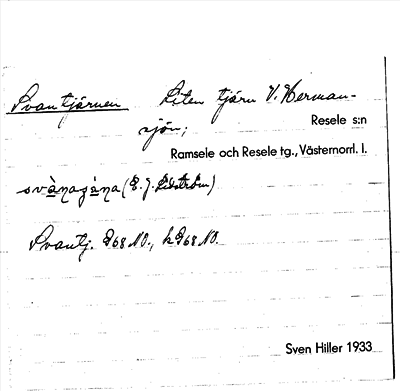 Svantjärnen Liten tjärn V. Herman-
sjön;
Resele s:n
Ramsele och Resele tg., Västernorrl. l.
svànaɟána (E. J.
Svantj. G68 NO., k G68 NO.
Sven Hiller 1933